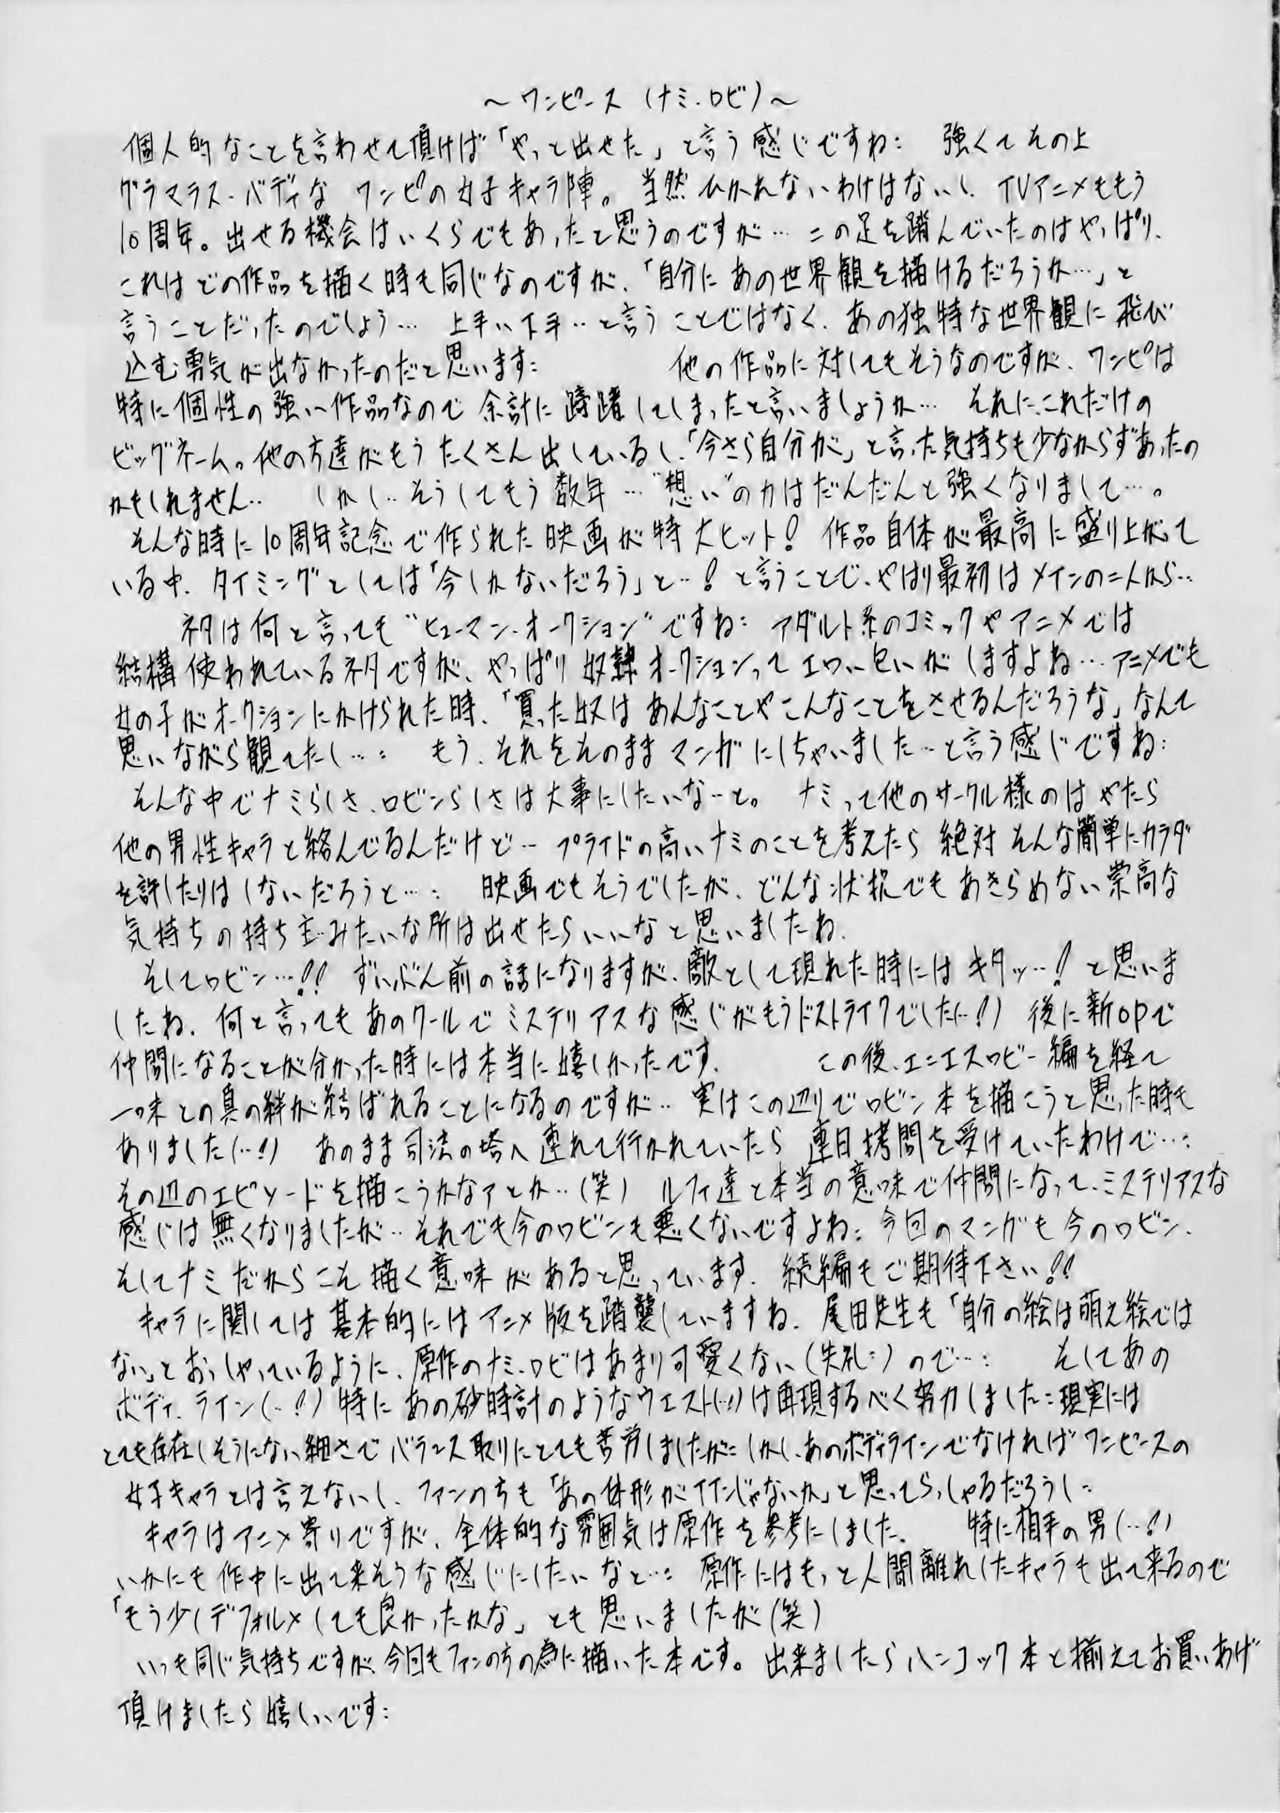 ～ワンピース（ナミ・ロビ）～
個人的なことを言わせて頂けば「やっと出せた」と言う感じですね： 強くてその上
グラマラス・バディな ワンピの女子キャラ陣。当然ひかれないわけはないし、TVアニメももう
10周年。出せる機会はいくらでもあったと思うのですが… 二の足を踏んでいたのはやっぱり、
これはどの作品を描く時も同じなのですが、「自分にあの世界観を描けるだろうか…」と
言うことだったのでしょう… 上手い下手‥と言うことではなく、あの独特な世界観に飛び
込む勇気が出なかったのだと思います： 他の作品に対してもそうなのですが、ワンピは
特に個性の強い作品なので 余計に躊躇してしまったと言いましょうか… それに、これだけの
ビッグネーム。他の方達がもうたくさん出しているし、「今さら自分が」と言った気持ちも少なからずあったの
かもしれません‥ しかし‥そうしてもう数年…“想い”の力はだんだんと強くなりまして…。
そんな時に10周年記念で作られた映画が特大ヒット！ 作品自体が最高に盛り上がって
いる中、タイミングとしては「今しかないだろう」と‥！と言うことで、やはり最初はメインの二人から‥
ネタは何と言っても“ヒューマン・オークション”ですね： アダルト系のコミックやアニメでは
結構使われているネタですが、やっぱり奴隷オークションってエロい匂いがしますよね… アニメでも
女の子がオークションにかけられた時、「買った奴はあんなことやこんなことをさせるんだろうな」なんて
思いながら観てたし…： もう、それをそのままマンガにしちゃいました‥と言う感じですね：
そんな中でナミらしさ、ロビンらしさは大事にしたいなーと。 ナミって他のサークル様のはやたら
他の男性キャラと絡んでるんだけど‥ プライドの高いナミのことを考えたら絶対そんな簡単にカラダ
を許したりはしないだろうと…： 映画でもそうでしたが、どんな状況でもあきらめない崇高な
気持ちの持ち主みたいな所は出せたらいいなと思いましたね、
そしてロビン…!! ずいぶん前の話になりますが、敵として現れた時にはキタッ‥！と思いま
したね、何と言ってもあのクールでミステリアスな感じがもうドストライクでした(…!) 後に新OPで
仲間になることが分かった時には本当に嬉しかったです、 この後、エニエスロビー編を経て
一味との真の絆が結ばれることになるのですが‥ 実はこの辺りでロビン本を描こうと思った時も
ありました(…!) あのまま司法の塔へ連れて行かれていたら連日拷問を受けていたわけで…：
その辺のエピソードを描こうかなァとか‥(笑) ルフィ達と本当の意味で仲間になって、ミステリアスな
感じは無くなりましたが‥それでも今のロビンも悪くないですよね：今回のマンガも今のロビン、
そしてナミだからこそ描く意味があると思っています、続編もご期待下さい!!
キャラに関しては基本的にはアニメ版を踏襲していますね、尾田先生も「自分の絵は萌え絵では
ない」とおっしゃっているように、原作のナミ・ロビはあまり可愛くない(失礼：)ので…： そしてあの
ボディ・ライン(…!) 特にあの砂時計のようなウエスト(…!)は再現するべく努力しました：現実には
とても存在しそうにない細さでバランス取りにとても苦労しましたが：しかし、あのボディラインでなければワンピースの
女子キャラとは言えないし、ファンの方も「あの体形がイイんじゃないか」と思ってらっしゃるだろうし：
キャラはアニメ寄りですが、全体的な雰囲気は原作を参考にしました、 特に相手の男(…!)
いかにも作中に出て来そうな感じにしたいなと…： 原作にはもっと人間離れしたキャラも出て来るので
「もう少しデフォルメしても良かったかな」とも思いましたが(笑)
いつも同じ気持ちですが、今回もファンの方の為に描いた本です。出来ましたらハンコック本と揃えてお買いあげ
頂けましたら嬉しいです：